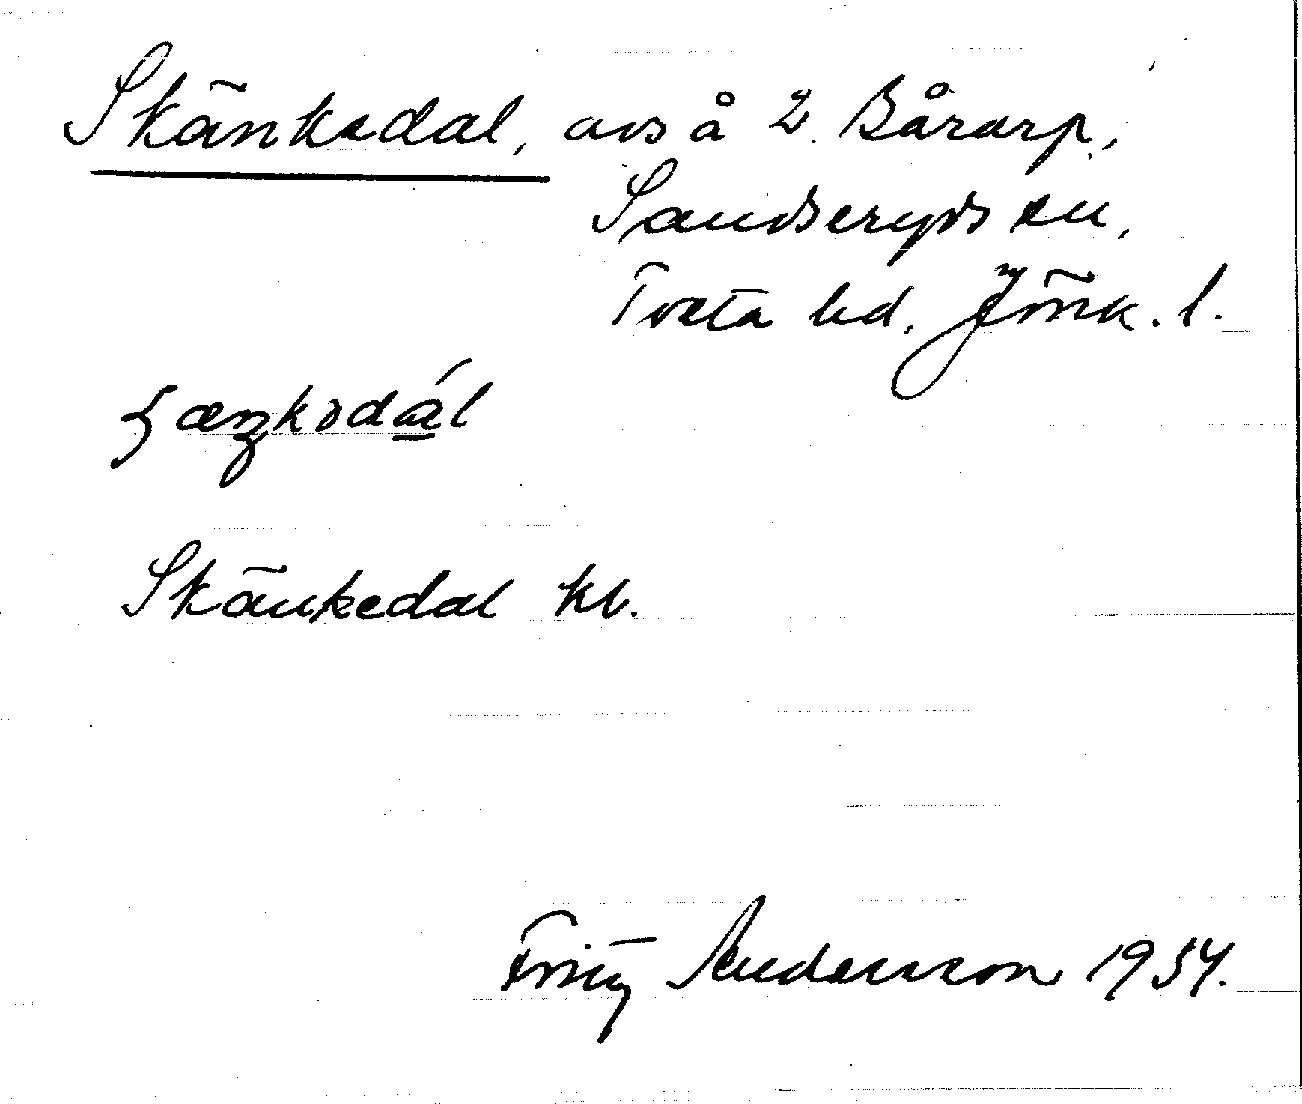 Skänkedal, avs å 2 Bårarp,
Sandseryds sn,
Tveta hd, Jönk. l.
Skänkedal kb.
Fritz Andersson 1934.